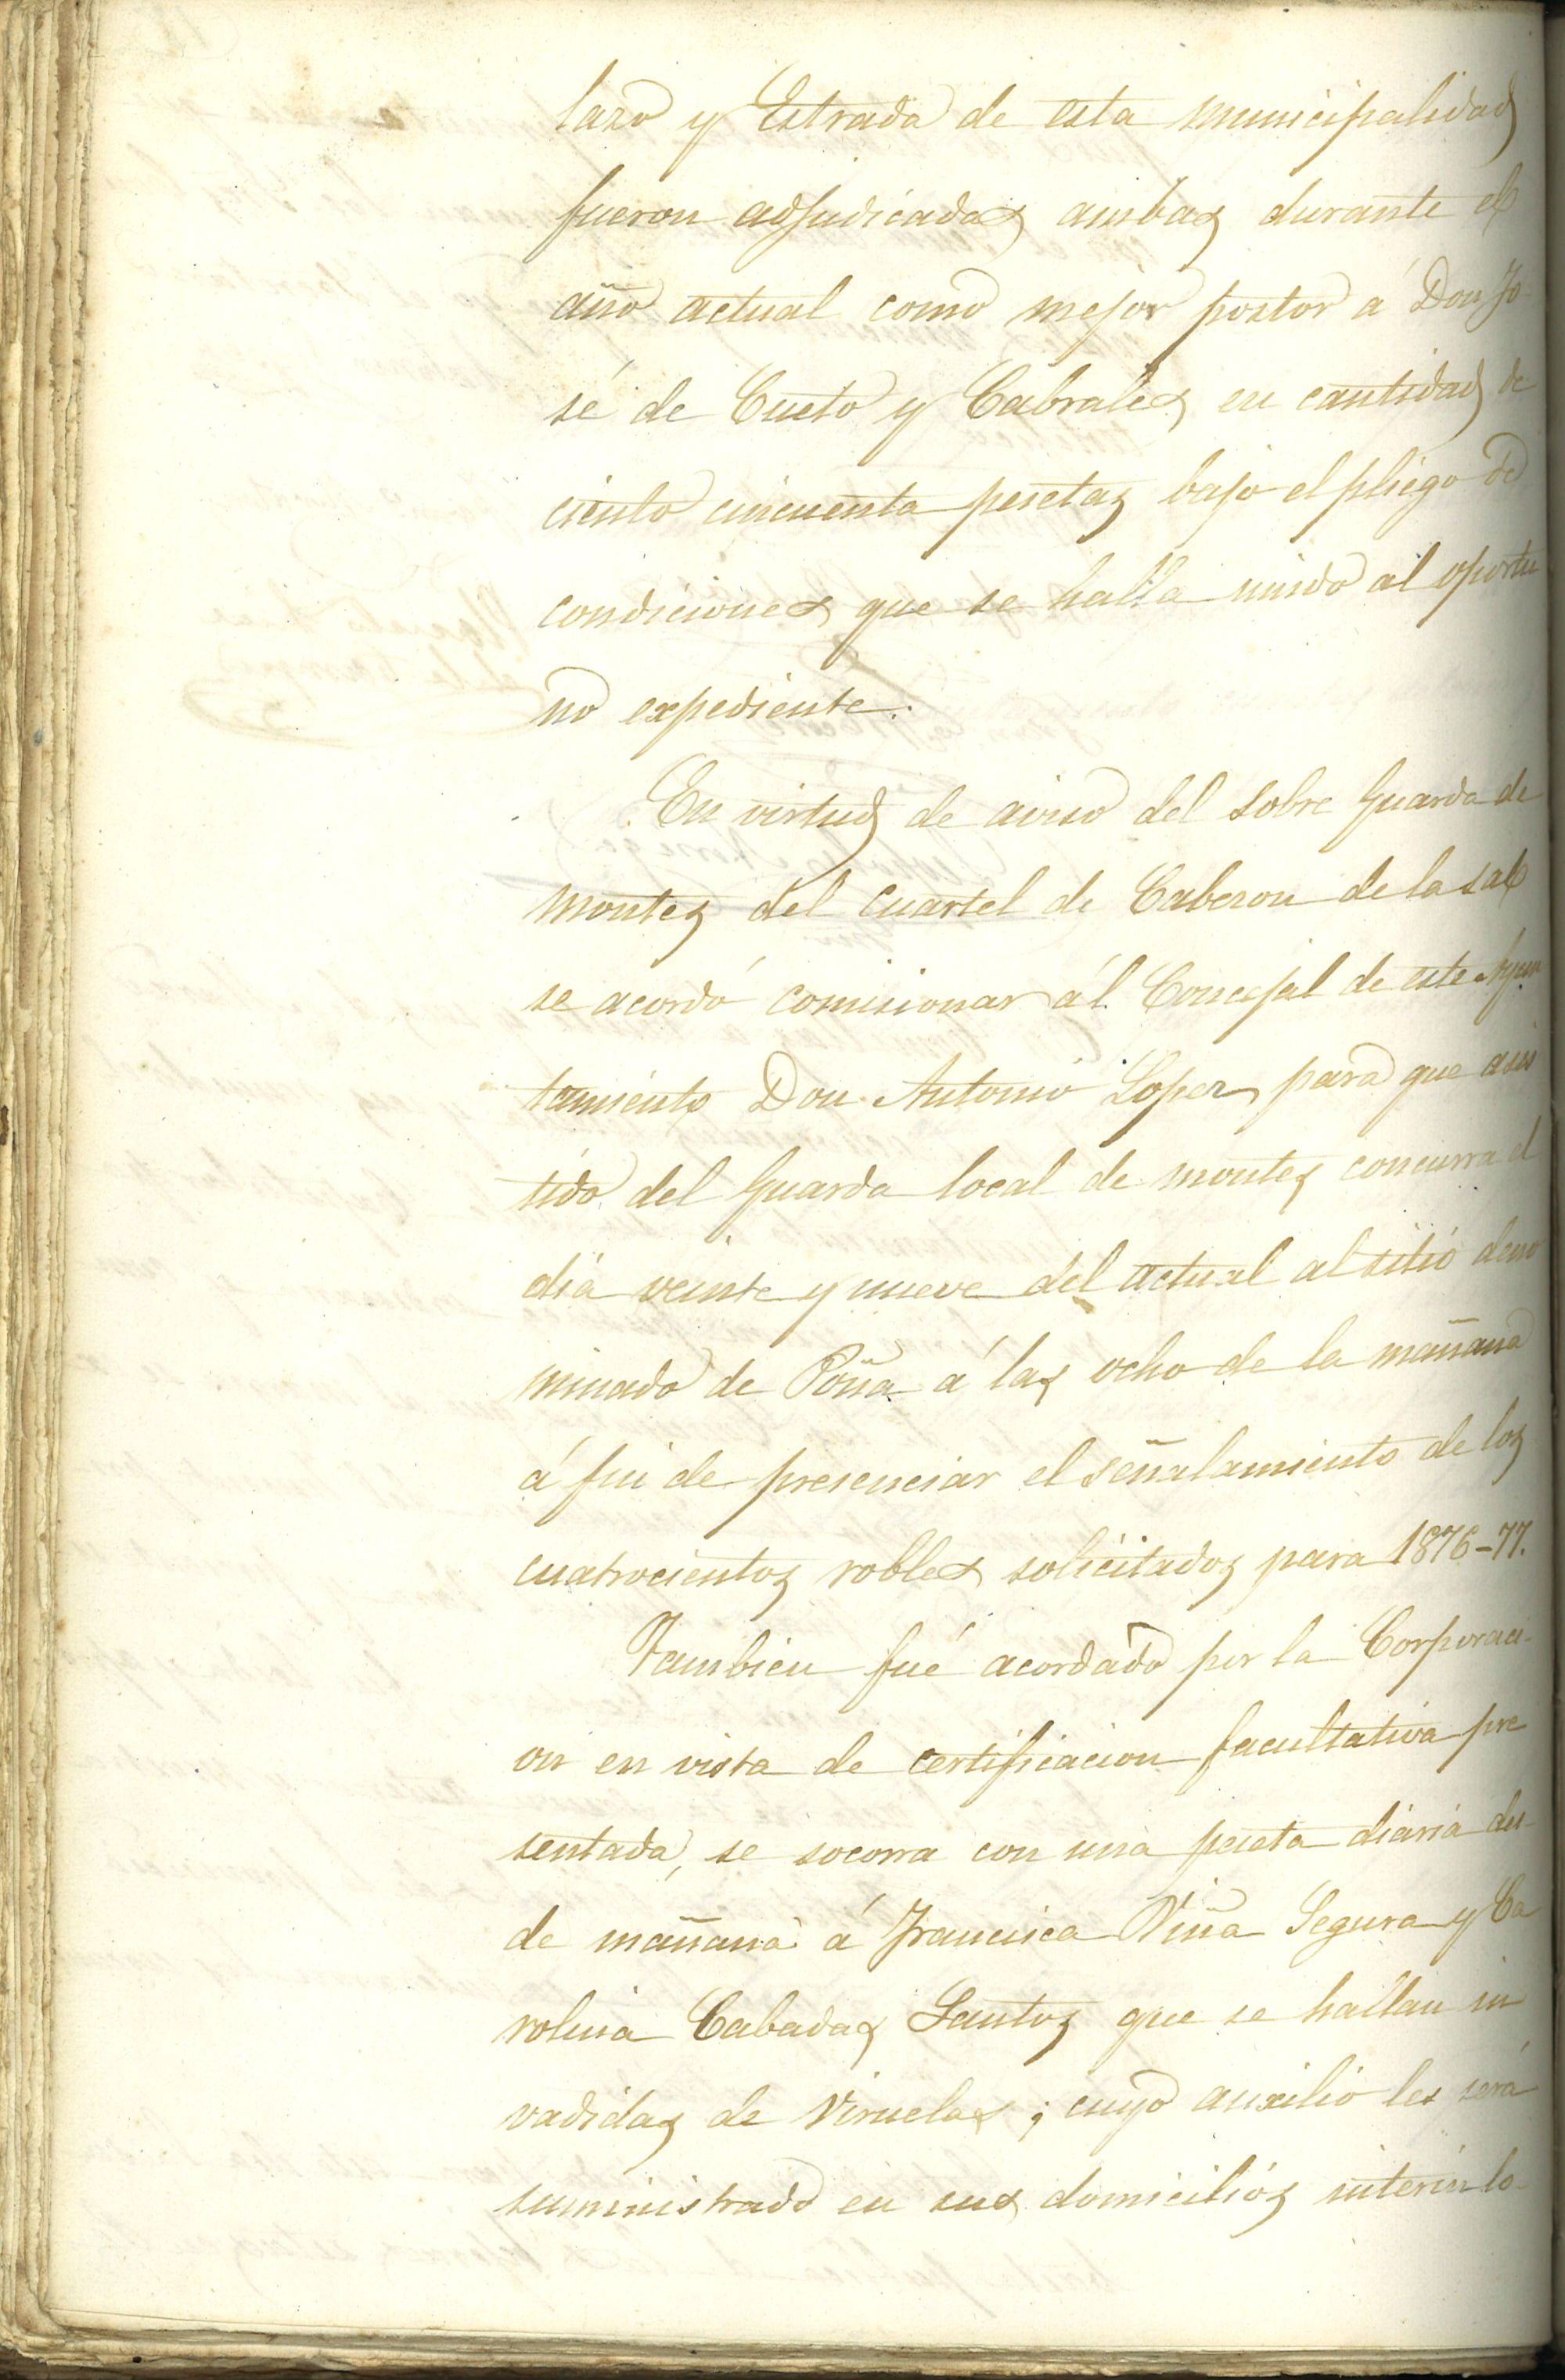 lazo y Estrada de esta municipalidad
fueron adjudicadas ambas durante el
año actual como mejor postor á Don Jo-
sé de Cueto y Cabrales en cantidad de
ciento cincuenta pesetas bajo el pliego de
condiciones que se halla unido al oportu
no expediente.
En virtud de aviso del sobre guarda de
montes del cuartel de Cabezon de la sal
se acordó comisionar ál Concejal de este Ayun
tamiento Don Antonio Lopez para que asis
tido del guarda local de montes concurra el
dia veinte y nueve del actual al sitio deno
minado de Poña á las ocho de la mañana
á fin de presenciar el señalamiento de los
cuatrocientos robles solicitados para 1876-77.
Tambien fué acordado por la Corporaci-
on en vista de certificacion facultativa pre
sentada, se socorra con una peseta diaria des-
de mañana á Francisca Viña Segura y Ca
rolina Cabadas Santos que se hallan in
vadidas de Viruelas; cuyo auxilio les será
suministrado en sus domicilios interin lo-